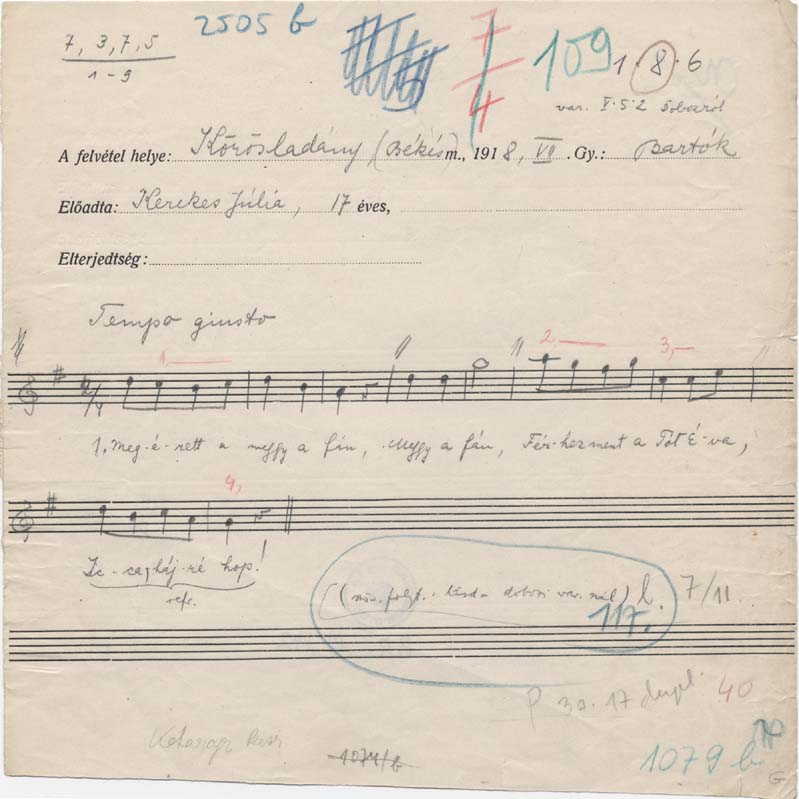 2505 b
7, 3, 7, 5
1-9
7/4
109
1.8.6
var. V.5.2
A felvétel helye: Körösladány (Békés m., 1918, VII. Gy.: Bartók
Előadta: Kerekes Júlia, 17 éves,
Elterjedtség:
Tempo giusto
1, 2, 3,
2/4
1. Meg-é-rett a meggy a fán, Meggy a fán, Fér-hez ment a Tót É-va,
4,
Ic-ca, háj-ré hop!
refr.
(növ. folyt. lásd a dobozi var. nál) l. 7/11.
117.
40
1074/b
1079 b
G